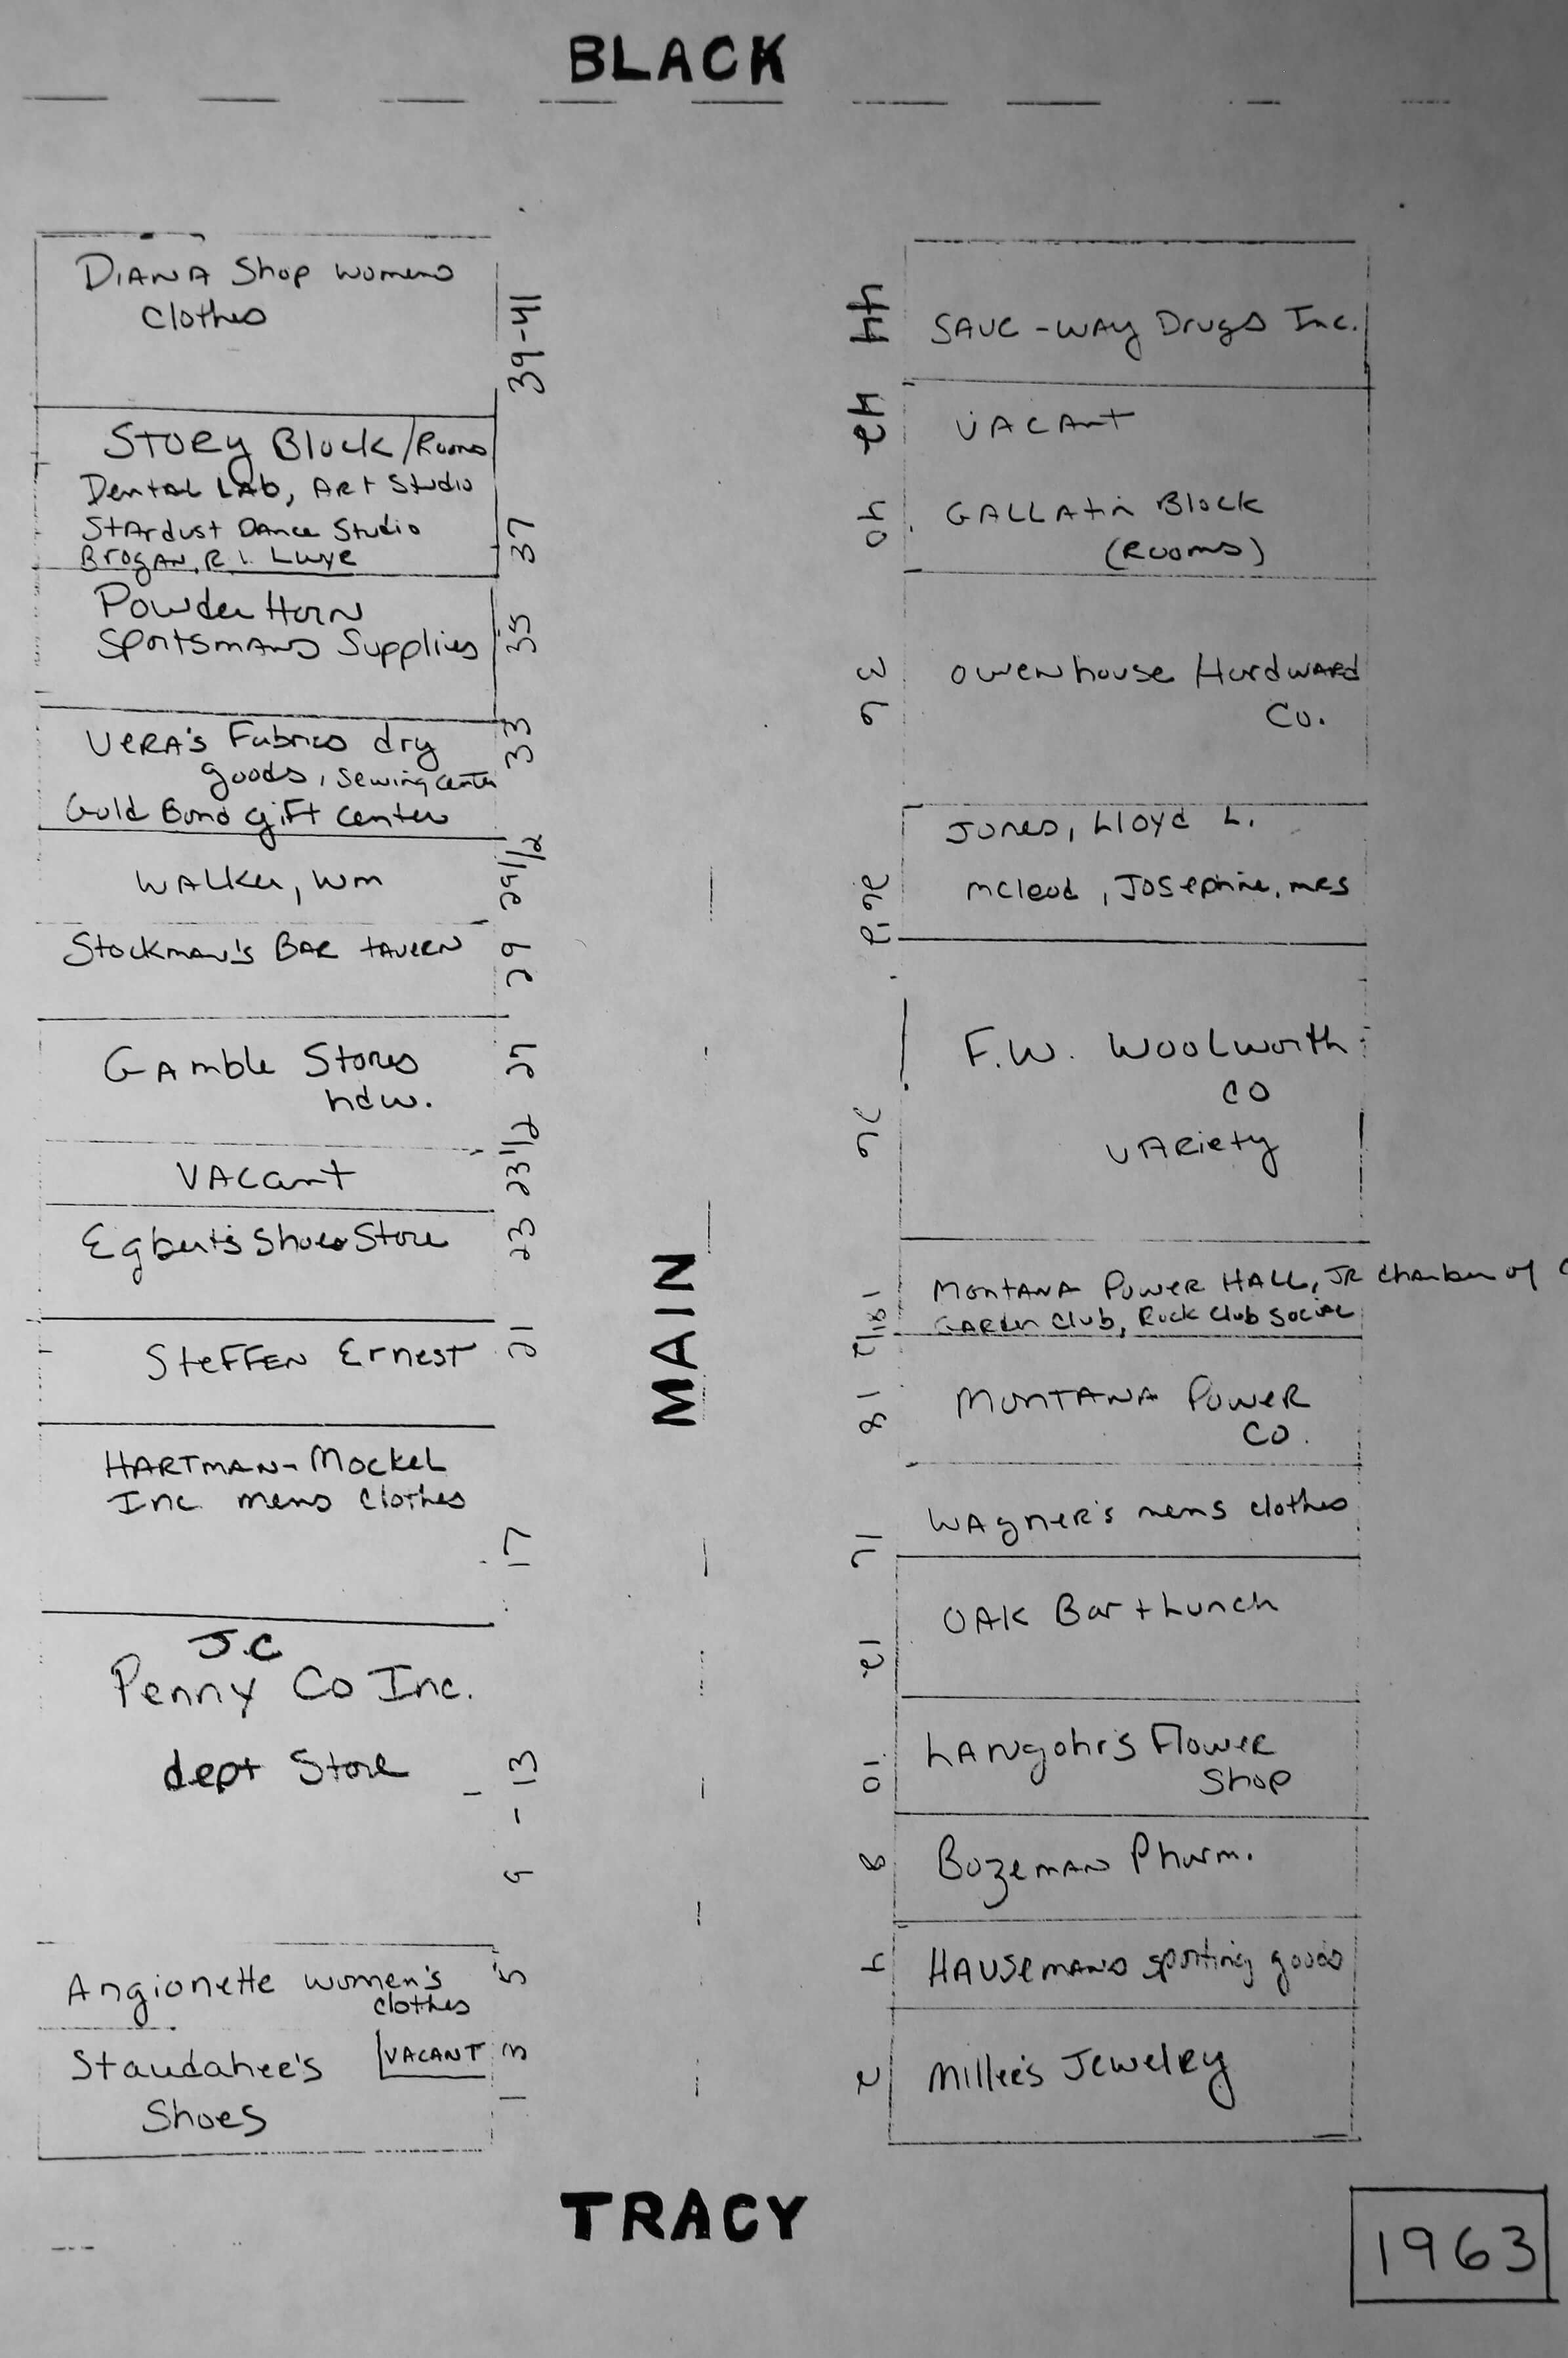 BLACK
DIANA Shop womens
Clothes
39-41
STORY Block/Rooms
Dental LAB, ART Studio
Stardust Dance Studio
Brogan, R.
37
Powder Horn
Sportsmans Supplies
35
VERA'S Fabrics dry
goods, sewing center
Gold Bond gift center
33
WALKER, WM
29 1/2
Stockman's BAR TAVERN
29
GAmble Stores
hdw.
27
VACant
23 1/2
Egbert's Shoe Store
23
STEFFEN Ernest
21
HARTMAN-Mockel
Inc. mens clothes
17
J.C
Penny Co Inc.
dept Store
9 - 13
Angionette women's
clothes
5
Staudaher's
Shoes
VACANT
3
1
MAIN
44
SAVE-WAY Drugs Inc.
42
VACAnt
40
GALLAtin Block
(ROOMS)
36
Owenhouse HardwARD
Co.
Jones, Lloyd L.
mcleod, Josephine, mrs
26 1/2
F.W. Woolworth
CO
VARiety
26
MontANA Power HALL, JR Chamber of
GARden Club, Rock Club Social
18 1/2
MONTANA POWER
CO.
18
WAgnER's mens clothes
OAK Bar + Lunch
12
LANgohr's Flower
Shop
10
BozemAN Pharm.
8
HAUSEMANS sporting goods
4
Miller's Jewelry
2
TRACY
1963